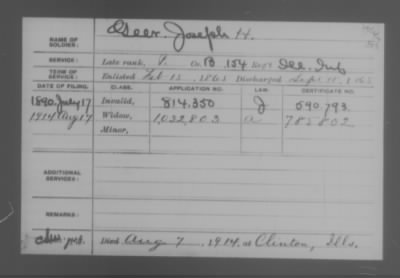 NAME OF SOLDIER: Geer, Joseph H.
SERVICE: Late rank, P. Co. B, 154 Reg't Ill. Inf
TERM OF SERVICE: Enlisted Feb 13, 1865 Discharged Sept 18, 1865
DATE OF FILING. CLASS. APPLICATION NO. LAW. CERTIFICATE NO.
1890 July 17 Invalid, 814,350 J 590,793
1914 Aug 17 Widow, 1,032,803 a 785802
Minor,
ADDITIONAL SERVICES:
REMARKS:
Died Aug 7 1914, at Clinton, Ills.